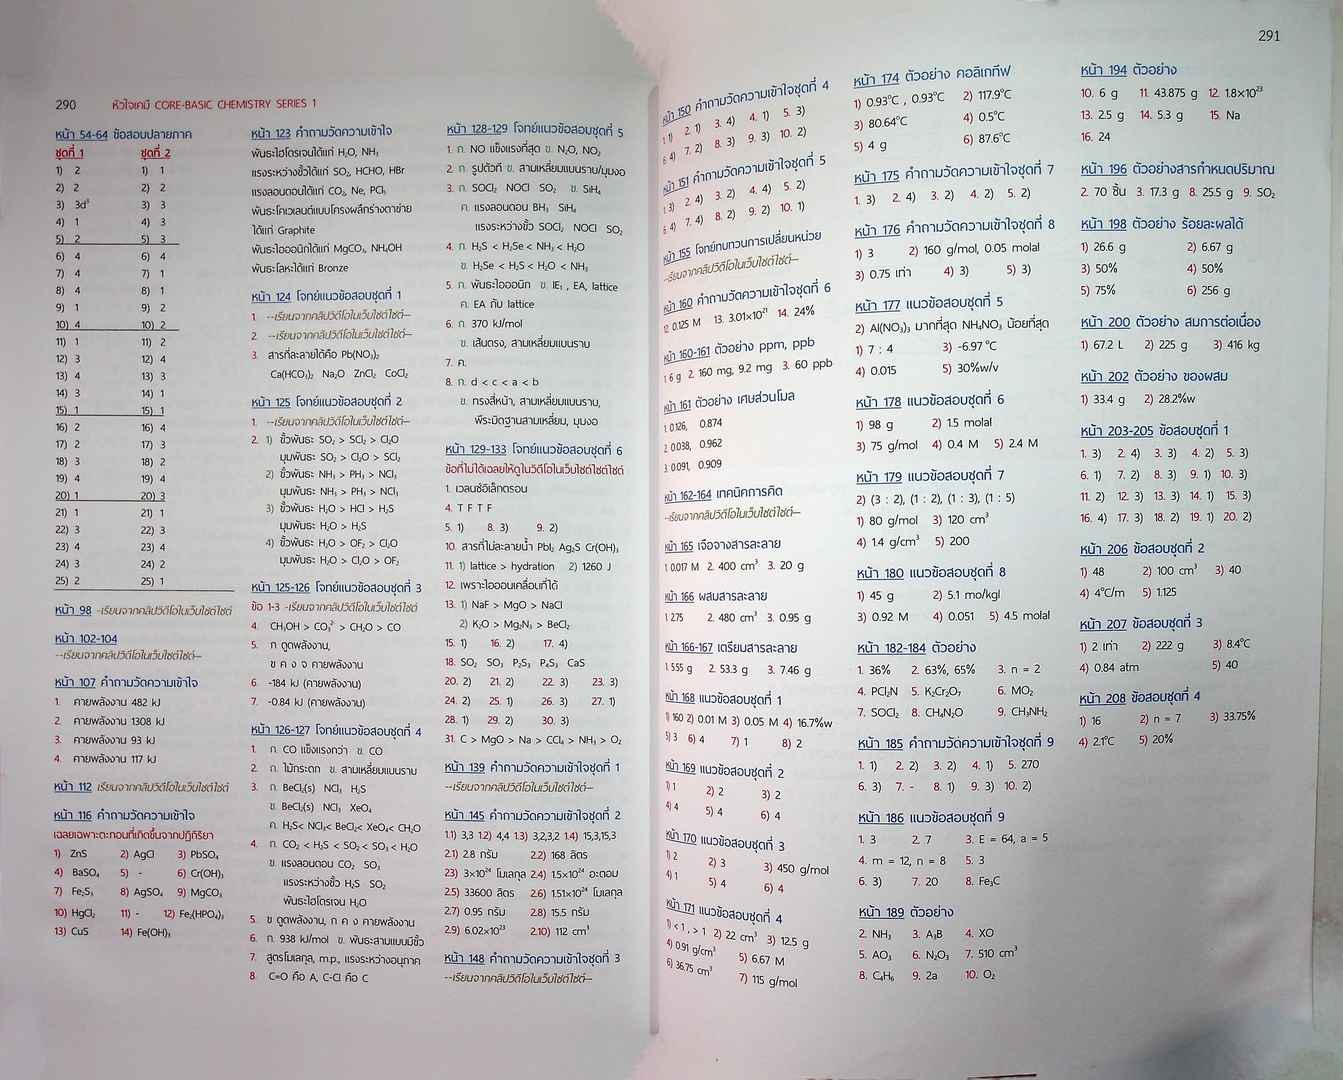 290 หัวใจเคมี CORE-BASIC CHEMISTRY SERIES 1
หน้า 54-64 ข้อสอบปลายภาค
ชุดที่ 1 ชุดที่ 2
1) 2 1) 1
2) 2 2) 2
3) 3d⁵ 3) 3
4) 1 4) 3
5) 2 5) 3
6) 4 6) 4
7) 4 7) 1
8) 4 8) 1
9) 1 9) 2
10) 4 10) 2
11) 1 11) 2
12) 3 12) 4
13) 4 13) 3
14) 3 14) 1
15) 1 15) 1
16) 2 16) 4
17) 2 17) 3
18) 3 18) 2
19) 4 19) 4
20) 1 20) 3
21) 1 21) 1
22) 3 22) 3
23) 4 23) 4
24) 3 24) 2
25) 2 25) 1
หน้า 98 -เรียนจากคลิปวิดีโอในเว็บไซต์ไซต์
หน้า 102-104
--เรียนจากคลิปวิดีโอในเว็บไซต์ไซต์--
หน้า 107 คำถามวัดความเข้าใจ
1. คายพลังงาน 482 kJ
2. คายพลังงาน 1308 kJ
3. คายพลังงาน 93 kJ
4. คายพลังงาน 117 kJ
หน้า 112 เรียนจากคลิปวิดีโอในเว็บไซต์ไซต์
หน้า 116 คำถามวัดความเข้าใจ
เฉลยเฉพาะตะกอนที่เกิดขึ้นจากปฏิกิริยา
1) ZnS 2) AgCl 3) PbSO₄
4) BaSO₄ 5) - 6) Cr(OH)₃
7) Fe₂S₃ 8) AgSO₄ 9) MgCO₃
10) HgCl₂ 11) - 12) Fe₂(HPO₄)₃
13) CuS 14) Fe(OH)₃
หน้า 123 คำถามวัดความเข้าใจ
พันธะไฮโดรเจนได้แก่ H₂O, NH₃
แรงระหว่างขั้วได้แก่ SO₂, HCHO, HBr
แรงลอนดอนได้แก่ CO₂, Ne, PCl₅
พันธะโคเวเลนต์แบบโครงผลึกร่างตาข่าย
ได้แก่ Graphite
พันธะไอออนิกได้แก่ MgCO₃, NH₄OH
พันธะโลหะได้แก่ Bronze
หน้า 124 โจทย์แนวข้อสอบชุดที่ 1
1. --เรียนจากคลิปวิดีโอในเว็บไซต์ไซต์--
2. --เรียนจากคลิปวิดีโอในเว็บไซต์ไซต์--
3. สารที่ละลายได้คือ Pb(NO₃)₂
Ca(HCO₃)₂ Na₂O ZnCl₂ CoCl₂
หน้า 125 โจทย์แนวข้อสอบชุดที่ 2
1. --เรียนจากคลิปวิดีโอในเว็บไซต์ไซต์--
2. 1) ขั้วพันธะ SO₂ > SCl₂ > Cl₂O
มุมพันธะ SO₂ > Cl₂O > SCl₂
2) ขั้วพันธะ NH₃ > PH₃ > NCl₃
มุมพันธะ NH₃ > PH₃ > NCl₃
3) ขั้วพันธะ H₂O > HCl > H₂S
มุมพันธะ H₂O > H₂S
4) ขั้วพันธะ H₂O > OF₂ > Cl₂O
มุมพันธะ H₂O > Cl₂O > OF₂
หน้า 125-126 โจทย์แนวข้อสอบชุดที่ 3
ข้อ 1-3 -เรียนจากคลิปวิดีโอในเว็บไซต์ไซต์
4. CH₃OH > CO₃²⁻ > CH₂O > CO
5. ก ดูดพลังงาน,
ข ค ง จ คายพลังงาน
6. -184 kJ (คายพลังงาน)
7. -0.84 kJ (คายพลังงาน)
หน้า 126-127 โจทย์แนวข้อสอบชุดที่ 4
1. ก. CO แข็งแรงกว่า ข. CO
2. ก. ไม้กระดก ข. สามเหลี่ยมแบนราบ
3. ก. BeCl₂(s) NCl₃ H₂S
ข. BeCl₂(s) NCl₃ XeO₄
ค. H₂S< NCl₃< BeCl₂< XeO₄< CH₂O
4. ก. CO₂ < H₂S < SO₂ < SO₃ < H₂O
ข. แรงลอนดอน CO₂ SO₃
แรงระหว่างขั้ว H₂S SO₂
พันธะไฮโดรเจน H₂O
5. ข ดูดพลังงาน, ก ค ง คายพลังงาน
6. ก. 938 kJ/mol ข. พันธะสามแบบมีขั้ว
7. สูตรโมเลกุล, m.p., แรงระหว่างอนุภาค
8. C=O คือ A, C-Cl คือ C
หน้า 128-129 โจทย์แนวข้อสอบชุดที่ 5
1. ก. NO แข็งแรงที่สุด ข. N₂O, NO₂
2. ก. รูปตัวที ข. สามเหลี่ยมแบนราบ/มุมงอ
3. ก. SOCl₂ NOCl SO₂ ข. SiH₄
ค. แรงลอนดอน BH₃ SiH₄
แรงระหว่างขั้ว SOCl₂ NOCl SO₂
4. ก. H₂S < H₂Se < NH₃ < H₂O
ข. H₂Se < H₂S < H₂O < NH₃
5. ก. พันธะไอออนิก ข. IE₁ , EA, lattice
ค. EA กับ lattice
6. ก. 370 kJ/mol
ข. เส้นตรง, สามเหลี่ยมแบนราบ
7. ค.
8. ก. d < c < a < b
ข. ทรงสี่หน้า, สามเหลี่ยมแบนราบ,
พีระมิดฐานสามเหลี่ยม, มุมงอ
หน้า 129-133 โจทย์แนวข้อสอบชุดที่ 6
ข้อที่ไม่ได้เฉลยให้ดูในวิดีโอในเว็บไซต์ไซต์ไซต์
1. เวลนซ์อิเล็กตรอน
4. T F T F
5. 1) 8. 3) 9. 2)
10. สารที่ไม่ละลายน้ำ PbI₂ Ag₂S Cr(OH)₃
11. 1) lattice > hydration 2) 1260 J
12. เพราะไอออนเคลื่อนที่ได้
13. 1) NaF > MgO > NaCl
2) K₂O > Mg₃N₂ > BeCl₂
15. 1) 16. 2) 17. 4)
18. SO₂ SO₃ P₂S₃ P₄S₃ CaS
20. 2) 21. 2) 22. 3) 23. 3)
24. 2) 25. 1) 26. 3) 27. 1)
28. 1) 29. 2) 30. 3)
31. C > MgO > Na > CCl₄ > NH₃ > O₂
หน้า 139 คำถามวัดความเข้าใจชุดที่ 1
--เรียนจากคลิปวิดีโอในเว็บไซต์ไซต์--
หน้า 145 คำถามวัดความเข้าใจชุดที่ 2
1.1) 3,3 1.2) 4,4 1.3) 3,2,3,2 1.4) 15,3,15,3
2.1) 2.8 กรัม 2.2) 168 ลิตร
2.3) 3×10²⁴ โมเลกุล 2.4) 1.5×10²⁴ อะตอม
2.5) 33600 ลิตร 2.6) 1.51×10²⁴ โมเลกุล
2.7) 0.95 กรัม 2.8) 15.5 กรัม
2.9) 6.02×10²³ 2.10) 112 cm³
หน้า 148 คำถามวัดความเข้าใจชุดที่ 3
--เรียนจากคลิปวิดีโอในเว็บไซต์ไซต์--
291
หน้า 150 คำถามวัดความเข้าใจชุดที่ 4
1. 1) 2. 1) 3. 4) 4. 1) 5. 3)
6. 4) 7. 2) 8. 3) 9. 3) 10. 2)
หน้า 151 คำถามวัดความเข้าใจชุดที่ 5
1. 3) 2. 4) 3. 2) 4. 4) 5. 2)
6. 4) 7. 4) 8. 2) 9. 2) 10. 1)
หน้า 155 โจทย์ทบทวนการเปลี่ยนหน่วย
--เรียนจากคลิปวิดีโอในเว็บไซต์ไซต์--
หน้า 160 คำถามวัดความเข้าใจชุดที่ 6
12. 0.125 M 13. 3.01×10²¹ 14. 24%
หน้า 160-161 ตัวอย่าง ppm, ppb
1. 6 g 2. 160 mg, 9.2 mg 3. 60 ppb
หน้า 161 ตัวอย่าง เศษส่วนโมล
1. 0.126, 0.874
2. 0.038, 0.962
3. 0.091, 0.909
หน้า 162-164 เทคนิคการคิด
--เรียนจากคลิปวิดีโอในเว็บไซต์ไซต์--
หน้า 165 เจือจางสารละลาย
1. 0.017 M 2. 400 cm³ 3. 20 g
หน้า 166 ผสมสารละลาย
1. 275 2. 480 cm³ 3. 0.95 g
หน้า 166-167 เตรียมสารละลาย
1. 555 g 2. 53.3 g 3. 7.46 g
หน้า 168 แนวข้อสอบชุดที่ 1
1) 160 2) 0.01 M 3) 0.05 M 4) 16.7%w
5) 3 6) 4 7) 1 8) 2
หน้า 169 แนวข้อสอบชุดที่ 2
1) 1 2) 2 3) 2
4) 4 5) 4 6) 4
หน้า 170 แนวข้อสอบชุดที่ 3
1) 2 2) 3 3) 450 g/mol
4) 1 5) 4 6) 4
หน้า 171 แนวข้อสอบชุดที่ 4
1) < 1 , > 1 2) 22 cm³ 3) 12.5 g
4) 0.91 g/cm³ 5) 6.67 M
6) 36.75 cm³ 7) 115 g/mol
หน้า 174 ตัวอย่าง คอลิเกทีฟ
1) 0.93°C , 0.93°C 2) 117.9°C
3) 80.64°C 4) 0.5°C
5) 4 g 6) 87.6°C
หน้า 175 คำถามวัดความเข้าใจชุดที่ 7
1. 3) 2. 4) 3. 2) 4. 2) 5. 2)
หน้า 176 คำถามวัดความเข้าใจชุดที่ 8
1) 3 2) 160 g/mol, 0.05 molal
3) 0.75 เท่า 4) 3) 5) 3)
หน้า 177 แนวข้อสอบชุดที่ 5
2) Al(NO₃)₃ มากที่สุด NH₄NO₃ น้อยที่สุด
1) 7 : 4 3) -6.97 °C
4) 0.015 5) 30%w/v
หน้า 178 แนวข้อสอบชุดที่ 6
1) 98 g 2) 1.5 molal
3) 75 g/mol 4) 0.4 M 5) 2.4 M
หน้า 179 แนวข้อสอบชุดที่ 7
2) (3 : 2), (1 : 2), (1 : 3), (1 : 5)
1) 80 g/mol 3) 120 cm³
4) 1.4 g/cm³ 5) 200
หน้า 180 แนวข้อสอบชุดที่ 8
1) 45 g 2) 5.1 mo/kgl
3) 0.92 M 4) 0.051 5) 4.5 molal
หน้า 182-184 ตัวอย่าง
1. 36% 2. 63%, 65% 3. n = 2
4. PCl₂N 5. K₂Cr₂O₇ 6. MO₂
7. SOCl₂ 8. CH₄N₂O 9. CH₃NH₂
หน้า 185 คำถามวัดความเข้าใจชุดที่ 9
1. 1) 2. 2) 3. 2) 4. 1) 5. 270
6. 3) 7. - 8. 1) 9. 3) 10. 2)
หน้า 186 แนวข้อสอบชุดที่ 9
1. 3 2. 7 3. E = 64, a = 5
4. m = 12, n = 8 5. 3
6. 3) 7. 20 8. Fe₃C
หน้า 189 ตัวอย่าง
2. NH₃ 3. A₃B 4. XO
5. AO₃ 6. N₂O₃ 7. 510 cm³
8. C₄H₆ 9. 2a 10. O₂
หน้า 194 ตัวอย่าง
10. 6 g 11. 43.875 g 12. 1.8×10²³
13. 2.5 g 14. 5.3 g 15. Na
16. 24
หน้า 196 ตัวอย่างสารกำหนดปริมาณ
2. 70 ชิ้น 3. 17.3 g 8. 25.5 g 9. SO₂
หน้า 198 ตัวอย่าง ร้อยละผลได้
1) 26.6 g 2) 6.67 g
3) 50% 4) 50%
5) 75% 6) 256 g
หน้า 200 ตัวอย่าง สมการต่อเนื่อง
1) 67.2 L 2) 225 g 3) 416 kg
หน้า 202 ตัวอย่าง ของผสม
1) 33.4 g 2) 28.2%w
หน้า 203-205 ข้อสอบชุดที่ 1
1. 3) 2. 4) 3. 3) 4. 2) 5. 3)
6. 1) 7. 2) 8. 3) 9. 1) 10. 3)
11. 2) 12. 3) 13. 3) 14. 1) 15. 3)
16. 4) 17. 3) 18. 2) 19. 1) 20. 2)
หน้า 206 ข้อสอบชุดที่ 2
1) 48 2) 100 cm³ 3) 40
4) 4°C/m 5) 1.125
หน้า 207 ข้อสอบชุดที่ 3
1) 2 เท่า 2) 222 g 3) 8.4°C
4) 0.84 atm 5) 40
หน้า 208 ข้อสอบชุดที่ 4
1) 16 2) n = 7 3) 33.75%
4) 2.1°C 5) 20%